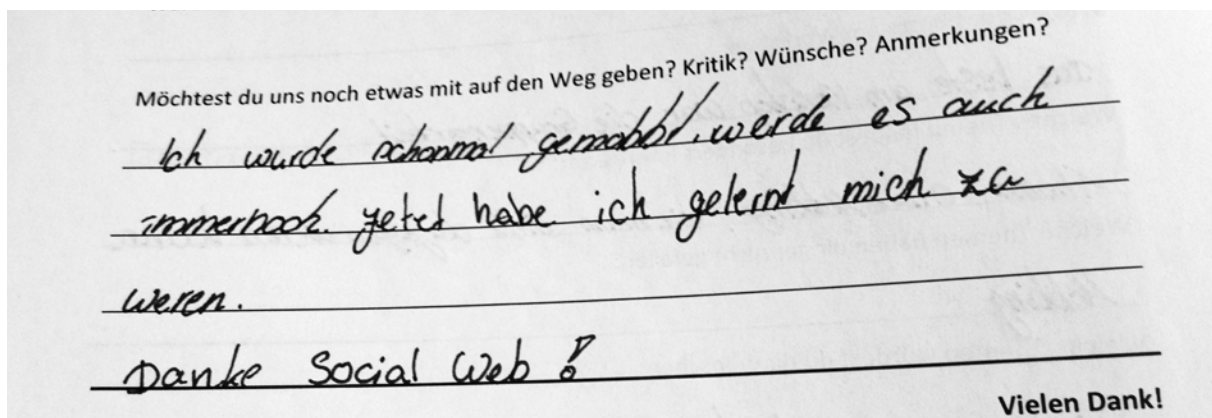 Möchtest du uns noch etwas mit auf den Weg geben? Kritik? Wünsche? Anmerkungen?
Ich wurde schonmal gemobbt. werde es auch
immernoch. yetzt habe ich gelernt mich zu
weren.
Danke Social Web!
Vielen Dank!